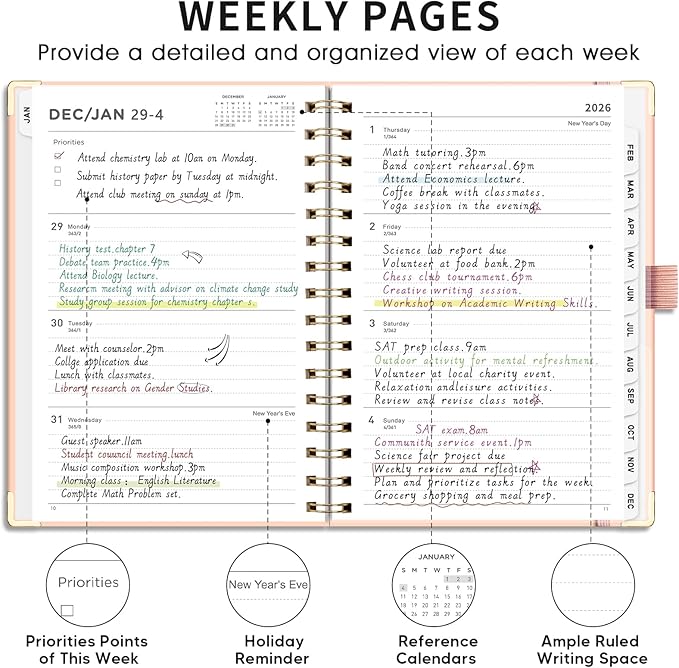 WEEKLY PAGES
Provide a detailed and organized view of each week
JAN
DEC/JAN 29-4
DECEMBER
JANUARY
Priorities
Attend chemistry lab at 10am on Monday.
Submit history paper by Tuesday at midnight.
Attend club meeting on sunday at 1pm.
29 Monday
363/2
History test.chapter 7
Debate team practice.4pm
Attend Biology lecture.
Research meeting with advisor on climate change study
Study group session for chemistry chapter s.
30 Tuesday
364/1
Meet with counselor.2pm
Collge application due
Lunch with classmates.
Library research on Gender Studies.
31 Wednesday
365/0
New Year's Eve
Guest speaker.11am
Student couuncil meeting.lunch
Music composition workshop.3pm
Morning class : English Literature
Complete Math Problem set.
10
2026
New Year's Day
1 Thursday
1/364
Math tutoring.3pm
Band concert rehearsal.6pm
Attend Economics lecture.
Coffee break with classmates.
Yoga session in the evening
2 Friday
2/363
Science lab report due
Volunteer at food bank.2pm
Chess club tournament.6pm
Creative writing session.
Workshop on Academic Writing Skills.
3 Saturday
3/362
SAT prep class.9am
Outdoor activity for mental refreshment.
Volunteer at local charity event.
Relaxation andleisure activities.
Review and revise class notes.
4 Sunday
4/361
SAT exam.8am
Communith service event.1pm
Science fair project due
Weekly review and reflection
Plan and prioritize tasks for the week.
Grocery shopping and meal prep.
11
FEB
MAR
APR
MAY
JUN
JUL
AUG
SEP
OCT
NOV
DEC
Priorities
New Year's Eve
JANUARY
S M T W T F S
1 2 3
4 5 6 7 8 9 10
11 12 13 14 15 16 17
18 19 20 21 22 23 24
25 26 27 28 29 30 31
Priorities Points
of This Week
Holiday
Reminder
Reference
Calendars
Ample Ruled
Writing Space